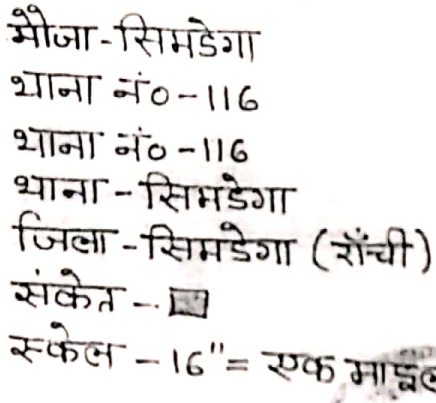 मौजा - सिमडेगा
थाना नं० - 116
थाना नं० - 116
थाना - सिमडेगा
जिला - सिमडेगा (राँची)
संकेत -
स्केल - 16" = एक माइल